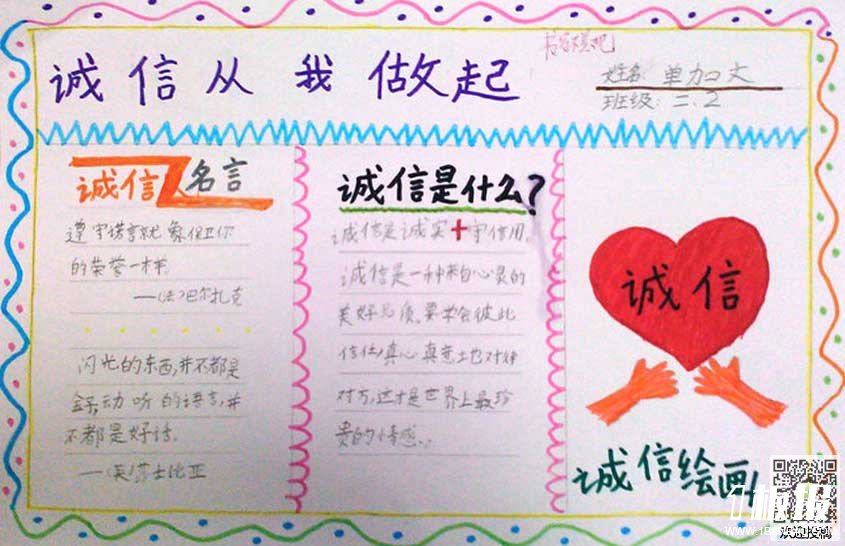 诚信从我做起
姓名：单加文
班级：二.2
诚信名言
遵守诺言就象保卫你
的荣誉一样。
——(法)巴尔扎克
闪光的东西,并不都是
金子,动听的语言,并
不都是好话。
——(英)莎士比亚
诚信是什么?
诚信是诚实+守信用。
诚信是一种来自心灵的
美好品质。要学会彼此
信任,真心真意土也对待
对方,这才是世界上最珍
贵的情感。
诚信
诚信绘画
个板报
欢迎投稿